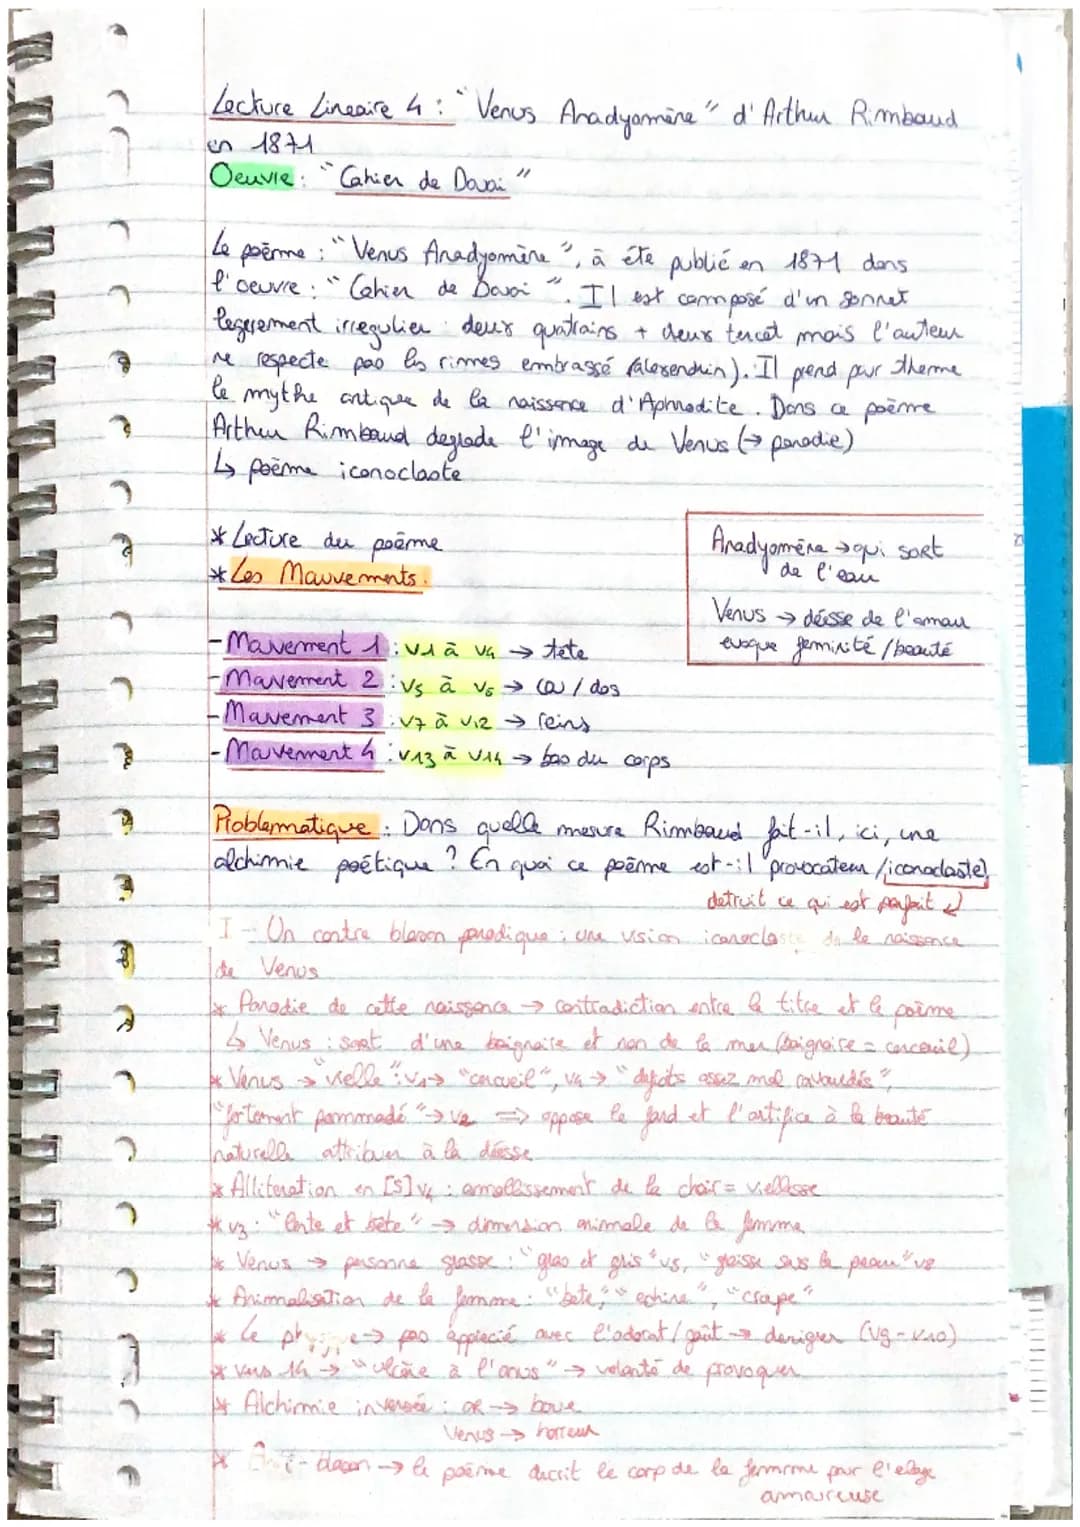 Lecture Lineaire 4 : "Venus Anadyomène" d'Arthur Rimbaud
en 1871
Oeuvre : "Cahier de Douai"
Le poème : "Venus Anadyomène", à éte publié en 1871 dans
l'oeuvre : "Cahier de Douai". Il est composé d'un sonnet
legerement irregulier : deux quatrains + deux tercet mais l'auteur
ne respecte pas les rimes embrassé (alexendrin). Il prend pour theme
le mythe antique de la naissance d'Aphrodite. Dans ce poème
Arthur Rimbaud degrade l'image de Venus (→ parodie)
↳ poème iconoclaste
* Lecture du poème
* Les Mouvements.
Anadyomène → qui sort
de l'eau
Venus → déesse de l'amour
evoque feminité / beauté
- Mouvement 1 : v1 à v4 → tete
- Mouvement 2 : v5 à v6 → cou / dos
- Mouvement 3 : v7 à v12 → reins
- Mouvement 4 : v13 à v14 → bas du corps
Problematique : Dans quelle mesure Rimbaud fait-il, ici, une
alchimie poétique ? En quoi ce poème est-il provocateur /iconoclaste)
detruit ce qui est parfait ↲
I - Un contre blason parodique : une vision iconoclaste de la naissance
de Venus
* Parodie de cette naissance → contradiction entre le titre et le poème
↳ Venus : sort d'une baignoire et non de la mer (baignoire = cercueil)
* Venus → "vielle" : v1 → "cercueil", v4 → "deficits assez mal ravaudés",
"fortement pommadé" → v2 ⇒ oppose le fard et l'artifice à la beauté
naturelle attribuer à la déesse
* Alliteration en [S] v4 : amollissement de la chair = viellesse
* v3 : "lente et bête" → dimension animale de la femme
* Venus → personne grasse : "gras et gris" v5, "graisse sous la peau" v8
* Animalisation de la femme : "bete", "echine", "croupe"
* Le → pas apprecié avec l'odorat / goût → denigrer (v9-v10)
* vers 14 → "ulcère à l'anus" → volonté de provoquer
* Alchimie inversée : OR → boue
Venus → horreur
* Anti-blason → le poème decrit le corp de la femme pour l'eloge
amoureuse